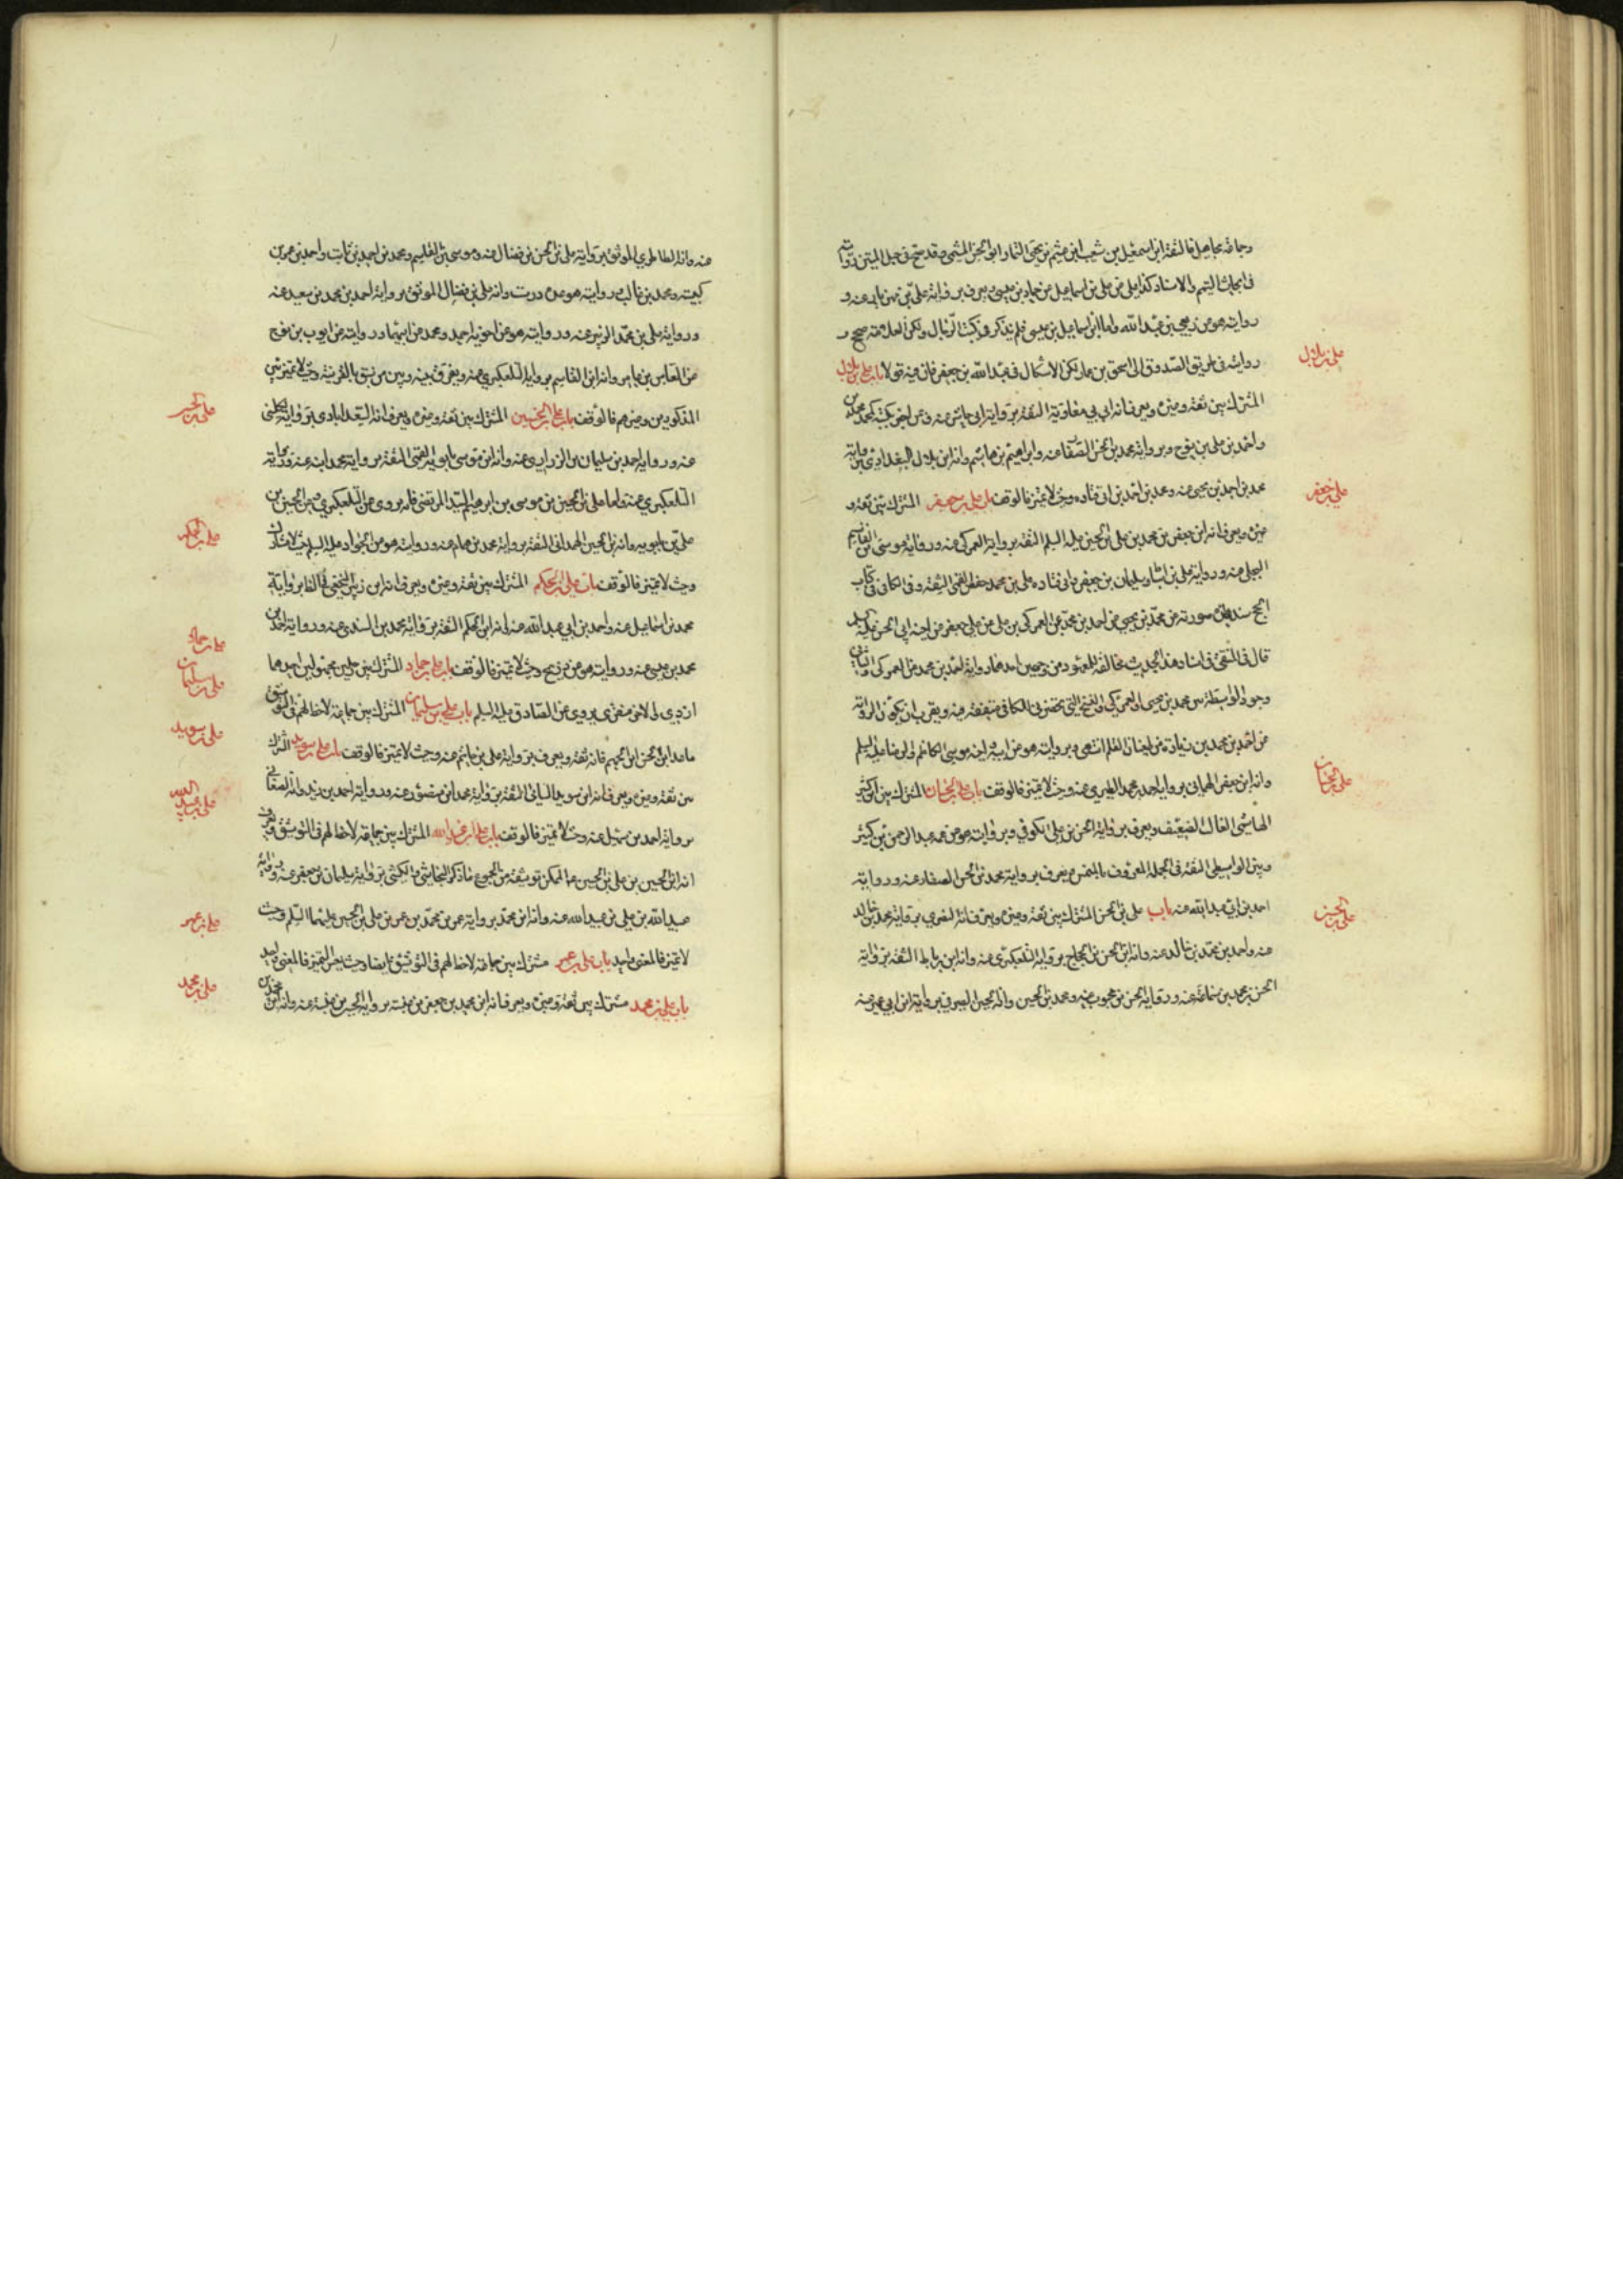 وجماعة مجاهيل فالثقة ابن اسمعيل بن شعيب ابن ميثم بن يحيى التمار ابو الحسن الميثمي وقد صح في حبل المتين روايته
في ابحاث التيمم والاسناد كذا علي عن علي بن اسماعيل عن حماد بن عيسى ويعرف برواية علي بن مهزيار عنه و
روايته هو عن ربعي بن عبد الله واما ابن اسماعيل بن عيسى فلم يذكر في كتب الرجال ولكن العلامة صحح
روايته في طريق الصدوق الى اسحق بن عمار لكن الاشكال في عبد الله بن جعفر فان فيه قولا باب علي بن بلال
علي بن بلال
المشترك بين ثقة وغيره ويعرف انه ابن ابي معاوية الثقة برواية ابي عنه وعن كتبه محمد بن
واحمد بن علي بن نوح وبرواية محمد بن الحسن الصفار عنه وابراهيم بن هاشم وانه ابن بلال البغدادي برواية
محمد بن احمد بن يحيى عنه ومحمد بن احمد بن ابي قتادة وحيث لا تميز فالوقف باب علي بن جعفر المشترك بين ثقة و
علي بن جعفر
غيره ويعرف انه ابن جعفر بن محمد بن علي بن الحسين عليه السلم الثقة برواية العمركي عنه ورواية موسى بن القاسم
البجلي عنه ورواية علي بن اسباط وسليمان بن جعفر وابي قتادة علي بن محمد بن حفص القمي الثقة وفي الكافي في كتاب
الحج سند هذه صورته عن محمد بن يحيى عن احمد بن محمد عن العمركي بن علي عن علي بن جعفر عن اخيه ابي الحسن عليه السلم
قال في المنتقى في اسناد هذا الحديث مخالفة للمعهود من وجهين احدهما رواية احمد بن محمد عن العمركي والثاني
وجود الواسطة بين محمد بن يحيى والعمركي والنسخ التي تحضرني للكافي متفقة فيه ويقرب ان يكون الرواية
عن احمد بن محمد بن زيادة من طغيان القلم انتهى وبروايته هو عن ابيه واخيه موسى الكاظم والرضا عليه السلم
وانه ابن جعفر الهماني برواية احمد بن محمد الطبري عنه وحيث لا تميز فالوقف باب علي بن حسان المشترك بين ابن كثير
علي بن حسان
الهاشمي الغال الضعيف ويعرف برواية الحسن بن علي الكوفي وبروايته هو عن عمه عبد الرحمن بن كثير
وبين الواسطي الثقة في الجملة المعروف بالمنمس ويعرف برواية محمد بن الحسن الصفار عنه ورواية
احمد بن ابي عبد الله عنه باب علي بن الحسن المشترك بين ثقة وغيره ويعرف انه البصري برواية محمد بن خالد
علي بن الحسن
عنه واحمد بن محمد بن خالد عنه وانه ابن الحسن بن الحجاج برواية التلعكبري عنه وانه ابن رباط الثقة برواية
الحسن بن محمد بن سماعة عنه ورواية الحسن بن محبوب عنه ومحمد بن الحسين وانه الحسن الصيرفي برواية ابن ابي عمير عنه
عنه وانه الطاطري الموثق برواية علي بن الحسن بن فضال عنه وموسى بن القاسم ومحمد بن احمد بن ثابت واحمد بن عمر بن
كيسبه ومحمد بن غالب وروايته هو عن درست وانه علي بن فضال الموثق برواية احمد بن محمد بن سعيد عنه
ورواية علي بن محمد الزبير عنه وروايته هو عن اخويه احمد ومحمد عن ابيهما وروايته عن ايوب بن نوح
عن العباس بن عامر وانه ابن القاسم برواية التلعكبري عنه ويفرق بينه وبين من سبق بالقرينة وحيث لا تميز بين
المذكورين وغيرهم فالوقف باب علي بن الحسين المشترك بين ثقة وغيره ويعرف انه السعدابادي برواية الكليني
علي بن الحسين
عنه ورواية احمد بن سليمان الزراري عنه وانه ابن موسى بابويه القمي الثقة برواية محمد ابنه عنه ورواية
التلعكبري عنه واما علي بن الحسين بن موسى بن ابراهيم السيد المرتضى فانه يروي عن التلعكبري وعن الحسين بن
علي بن بابويه وانه بن الحسين الهمداني الثقة برواية محمد بن همام عنه وروايته هو عن الجواد عليه السلم
وحيث لا تميز فالوقف باب علي بن الحكم المشترك بين ثقة وغيره ويعرف انه ابن زبير النخعي برواية
علي بن الحكم
محمد بن اسماعيل عنه واحمد بن ابي عبد الله عنه انه ابن الحكم الثقة برواية محمد بن السندي عنه ورواية احمد بن
محمد بن عيسى عنه وروايته هو عن وحيث لا تميز فالوقف باب علي بن حماد المشترك بين رجلين مجهولين احدهما
علي بن حماد
ازدي والاخر منقري يروي عن الصادق عليه السلم باب علي بن سليمان المشترك بين جماعة لاحظ لهم في التوثيق
علي بن سليمان
ما عدا ابن الحسن ابن الجهم فانه ثقة ويعرف برواية علي بن حاتم عنه وحيث لا تميز فالوقف باب علي بن سويد المشترك
علي بن سويد
بين ثقة وغيره ويعرف انه ابن سويد السائي الثقة برواية محمد بن منصور عنه ورواية احمد بن زيد وانه الصنعاني
برواية احمد بن سهيل عنه وحيث لا تميز فالوقف باب علي بن عبد الله المشترك بين جماعة لاحظ لهم في التوثيق ويعرف
علي بن عبد الله
انه ابن الحسين بن علي بن الحسين الممكن توثيقه من مجموع ما ذكر النجاشي والكشي برواية سليمان بن جعفر عنه ورواية
عبيد الله بن علي بن عبيد الله عنه وانه ابن محمد برواية عمر بن محمد بن عمر بن علي بن الحسين عليهما السلم وحيث
لا تميز فالمعنى واحد باب علي بن عمر مشترك بين جماعة لاحظ لهم في التوثيق ايضا وحيث يعسر التميز فالمعنى واحد
علي بن عمر
باب علي بن محمد مشترك بين ثقة وغيره ويعرف انه ابن محمد بن جعفر بن عنبسة برواية الحسين بن عنبسة عنه وانه ابن محمد بن
علي بن محمد